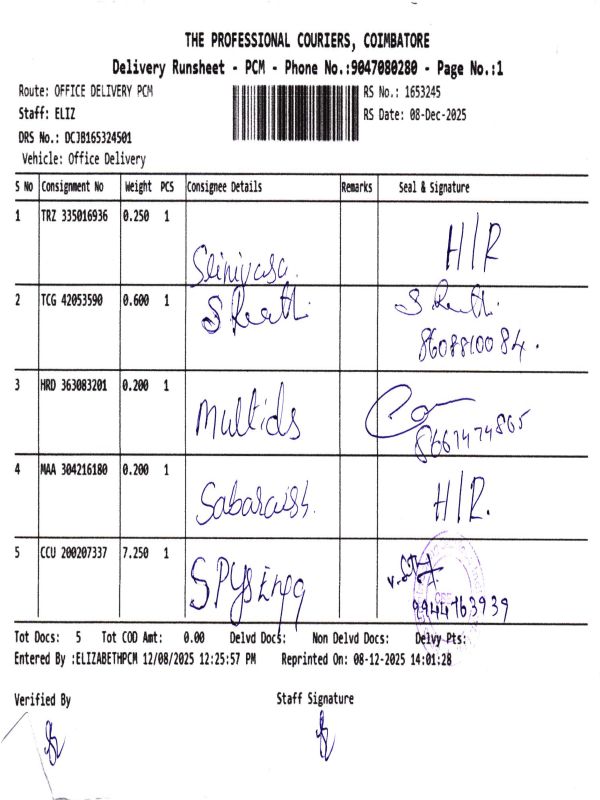 THE PROFESSIONAL COURIERS, COIMBATORE
Delivery Runsheet - PCM - Phone No.:9047080280 - Page No.:1
Route: OFFICE DELIVERY PCM
RS No.: 1653245
Staff: ELIZ
RS Date: 08-Dec-2025
DRS No.: DCJB165324501
Vehicle: Office Delivery
S No Consignment No Weight PCS Consignee Details Remarks Seal & Signature
1 TRZ 335016936 0.250 1 Srinivasa. H/R
2 TCG 42053590 0.600 1 8608810084.
3 HRD 363083201 0.200 1 Multids 8667474865
4 MAA 304216180 0.200 1 H/R.
5 CCU 200207337 7.250 1 9944763939
Tot Docs: 5 Tot COD Amt: 0.00 Delvd Docs: Non Delvd Docs: Delvy Pts:
Entered By :ELIZABETHPCM 12/08/2025 12:25:57 PM Reprinted On: 08-12-2025 14:01:28
Verified By Staff Signature